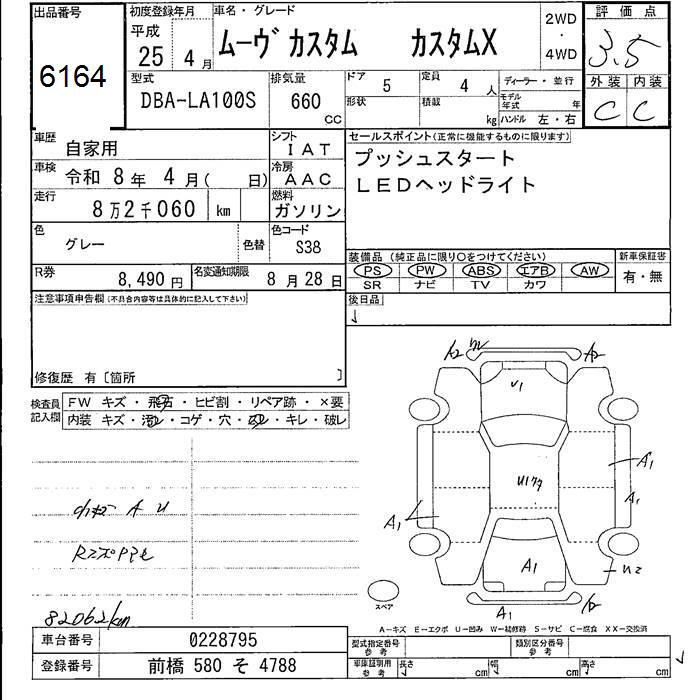 出品番号
6164
初度登録年月
平成
25 4 月
車名・グレード
ムーヴ カスタム カスタムX
2WD
・
4WD
評価点
3.5
外装 内装
C C
型式
DBA-LA100S
排気量
660
CC
ドア 5
形状
定員 4 人
積載 kg
ディーラー・並行
モデル年式 年
ハンドル 左・右
車歴 自家用
シフト IAT
車検 令和 8 年 4 月( 日)
冷房 AAC
走行 8万2千060 km
燃料 ガソリン
色 グレー
色替
色コード S38
R券 8,490 円
名変通知期限 8 月 28 日
セールスポイント(正常に機能するものに限ります)
プッシュスタート
LEDヘッドライト
装備品(純正品に限り○をつけてください)
PS PW ABS エアB AW
SR ナビ TV カワ
新車保証書
有・無
後日品
注意事項申告欄(不具合内容等は具体的に記入して下さい)
修復歴 有〔箇所 〕
検査員記入欄
FW キズ・飛石・ヒビ割・リペア跡・×要
内装 キズ・汚レ・コゲ・穴・スレ・キレ・破レ
A U
82062km
A2 W A2
U1
A1
A1
A1
A1
U2
A1
スペア
A-キズ E-エクボ U-凹み W-補修跡 S-サビ C-腐食 XX-交換済
車台番号 0228795
登録番号 前橋 580 そ 4788
型式指定番号 参考
類別区分番号 参考
車庫証明用 参考
長さ cm 幅 cm 高さ cm